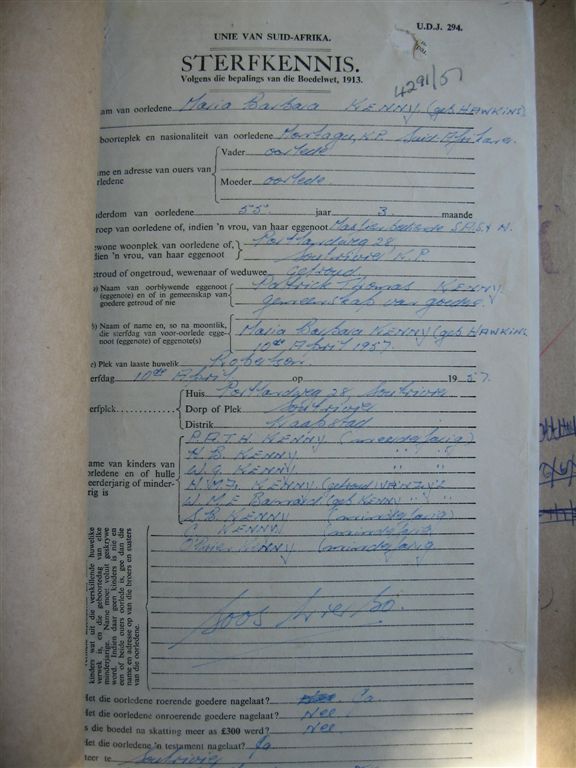 U.D.J. 294.
UNIE VAN SUID-AFRIKA.
STERFKENNIS.
Volgens die bepalings van die Boedelwet, 1913.
4291/57
am van oorledene Maria Barbara KENNY (geb HAWKINS)
boorteplek en nasionaliteit van oorledene Montagu, K.P. Suid Afrikaner
me en adresse van ouers van
rledene
Vader oorlede
Moeder oorlede
uderdom van oorledene 55 jaar 3 maande
roep van oorledene of, indien 'n vrou, van haar eggenoot
S.A.S. & H.
ewone woonplek van oorledene of,
dien 'n vrou, van haar eggenoot
Portlandweg 28,
Soutrivier K.P.
etroud of ongetroud, wewenaar of weduwee Getroud
) Naam van oorblywende eggenoot
(eggenote) en of in gemeenskap van
goedere getroud of nie
Patrick Thomas KENNY
gemeenskap van goedere
) Naam of name en, so na moontlik,
die sterfdag van voor-oorlede egge-
noot (eggenote) of eggenote(s)
Maria Barbara KENNY (geb HAWKINS
10de April 1957
) Plek van laaste huwelik Robertson
erfdag 10de April op 1957.
erfplek
Huis Portlandweg 28, Soutrivier
Dorp of Plek Soutrivier
Distrik Kaapstad
ame van kinders van
orledene en of hulle
eerderjarig of minder-
rig is
P.A.T.H. KENNY (meerderjarig)
H.B. KENNY " "
W.G. KENNY " "
KENNY (getroud VAN ZYL
W.M.E. Barnard (geb KENNY " "
S.B. KENNY (minderjarig)
KENNY (minderjarig
KENNY (minderjarig
kinders wat uit die verskillende huwelike
verwek is, en die geboortedag van elke
minderjarige. Name moet voluit geskrywe
word. Indien daar geen kinders is nie en
een of beide ouers oorlede is, gee dan die
name en adresse op van die broers en susters
van die oorledene.
Soos hierbo.
Het die oorledene roerende goedere nagelaat? Ja
Het die oorledene onroerende goedere nagelaat? Nee
s die boedel na skatting meer as £300 werd? Nee
Het die oorledene 'n testament nagelaat? Ja
teer te Soutrivier